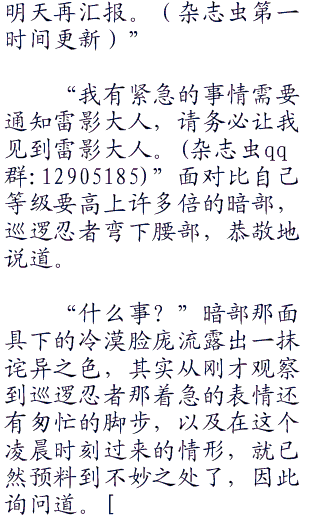 明天再汇报。（杂志虫第一
时间更新）”
“我有紧急的事情需要
通知雷影大人，请务必让我
见到雷影大人。(杂志虫qq
群:12905185)”面对比自己
等级要高上许多倍的暗部，
巡逻忍者弯下腰部，恭敬地
说道。
“什么事？”暗部那面
具下的冷漠脸庞流露出一抹
诧异之色，其实从刚才观察
到巡逻忍者那着急的表情还
有匆忙的脚步，以及在这个
凌晨时刻过来的情形，就已
然预料到不妙之处了，因此
询问道。[